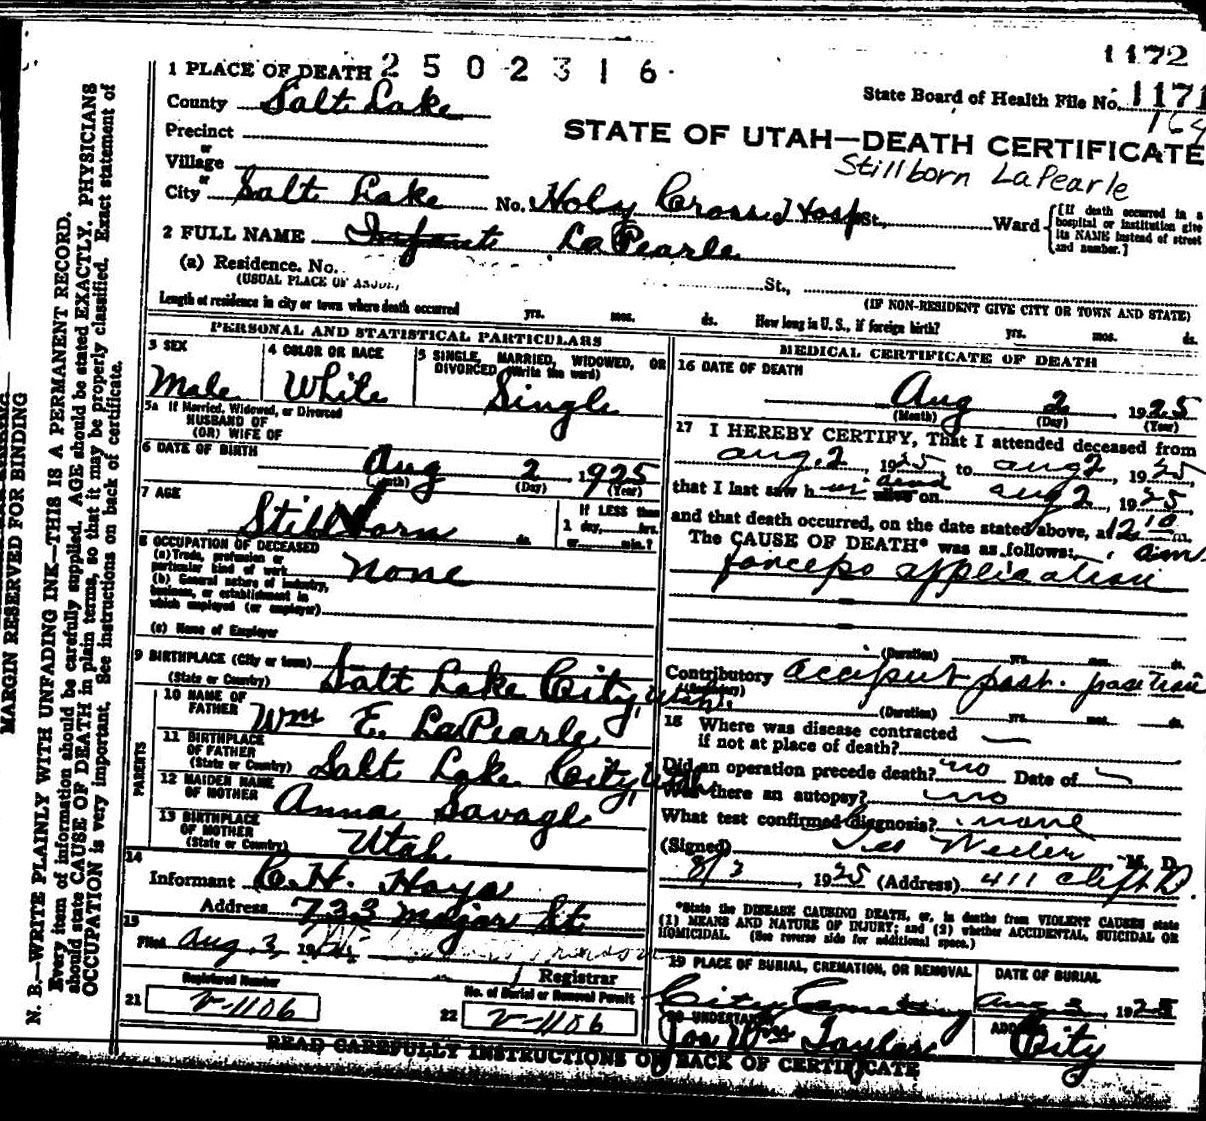 1172
1 PLACE OF DEATH 2 5 0 2 3 1 6
State Board of Health File No. 1171
County Salt Lake
164
Precinct
STATE OF UTAH—DEATH CERTIFICATE
or
Village
Stillborn LaPearle
or
City Salt Lake No. Holy Cross Hosp St., Ward [If death occurred in a hospital or institution give its NAME instead of street and number.]
2 FULL NAME Infant LaPearle
(a) Residence. No. St.,
(USUAL PLACE OF ABODE) (IF NON-RESIDENT GIVE CITY OR TOWN AND STATE)
Length of residence in city or town where death occurred yrs. mos. ds. How long in U. S., if foreign birth? yrs. mos. ds.
PERSONAL AND STATISTICAL PARTICULARS
3 SEX
Male
4 COLOR OR RACE
White
5 SINGLE, MARRIED, WIDOWED, OR
DIVORCED (Write the word)
Single
5a If Married, Widowed, or Divorced
HUSBAND OF
(OR) WIFE OF
6 DATE OF BIRTH
Aug 2 1925
(Month) (Day) (Year)
7 AGE
Stillborn ds.
If LESS than
1 day, hrs.
or min.?
8 OCCUPATION OF DECEASED
(a) Trade, profession or
particular kind of work None
(b) General nature of industry,
business, or establishment in
which employed (or employer)
(c) Name of Employer
9 BIRTHPLACE (City or town)
(State or Country) Salt Lake City, Utah.
PARENTS
10 NAME OF
FATHER Wm E. LaPearle
11 BIRTHPLACE
OF FATHER
(State or Country) Salt Lake City, Utah
12 MAIDEN NAME
OF MOTHER Anna Savage
13 BIRTHPLACE
OF MOTHER
(State or Country) Utah
14
Informant C. H. Hays
Address 733 Major St.
15
Filed Aug. 3, 1925
Registrar
Registered Number
21 V-1106
No. of Burial or Removal Permit
22 V-1106
MEDICAL CERTIFICATE OF DEATH
16 DATE OF DEATH
Aug 2, 1925
(Month) (Day) (Year)
17 I HEREBY CERTIFY, That I attended deceased from
Aug. 2, 1925, to Aug 2, 1925,
that I last saw him alive dead on Aug 2, 1925,
and that death occurred, on the date stated above, at 12 10 m.
The CAUSE OF DEATH* was as follows: am
forceps application
(Duration) yrs. mos. ds.
Contributory occiput post. position
(Duration) yrs. mos. ds.
18 Where was disease contracted
if not at place of death?
Did an operation precede death? no Date of
Was there an autopsy? no
What test confirmed diagnosis? none
(Signed) M. D.
8/3, 1925 (Address) 411 Clift B.
*State the DISEASE CAUSING DEATH, or, in deaths from VIOLENT CAUSES state
(1) MEANS AND NATURE OF INJURY; and (2) whether ACCIDENTAL, SUICIDAL OR
HOMICIDAL. (See reverse side for additional space.)
19 PLACE OF BURIAL, CREMATION, OR REMOVAL
City Cemetery
DATE OF BURIAL
Aug 3, 1925
20 UNDERTAKER
Jos Wm Taylor
ADDRESS
City
READ CAREFULLY INSTRUCTIONS ON BACK OF CERTIFICATE
MARGIN RESERVED FOR BINDING
N. B.—WRITE PLAINLY WITH UNFADING INK—THIS IS A PERMANENT RECORD.
Every item of information should be carefully supplied. AGE should be stated EXACTLY. PHYSICIANS
should state CAUSE OF DEATH in plain terms, so that it may be properly classified. Exact statement of
OCCUPATION is very important. See instructions on back of certificate.